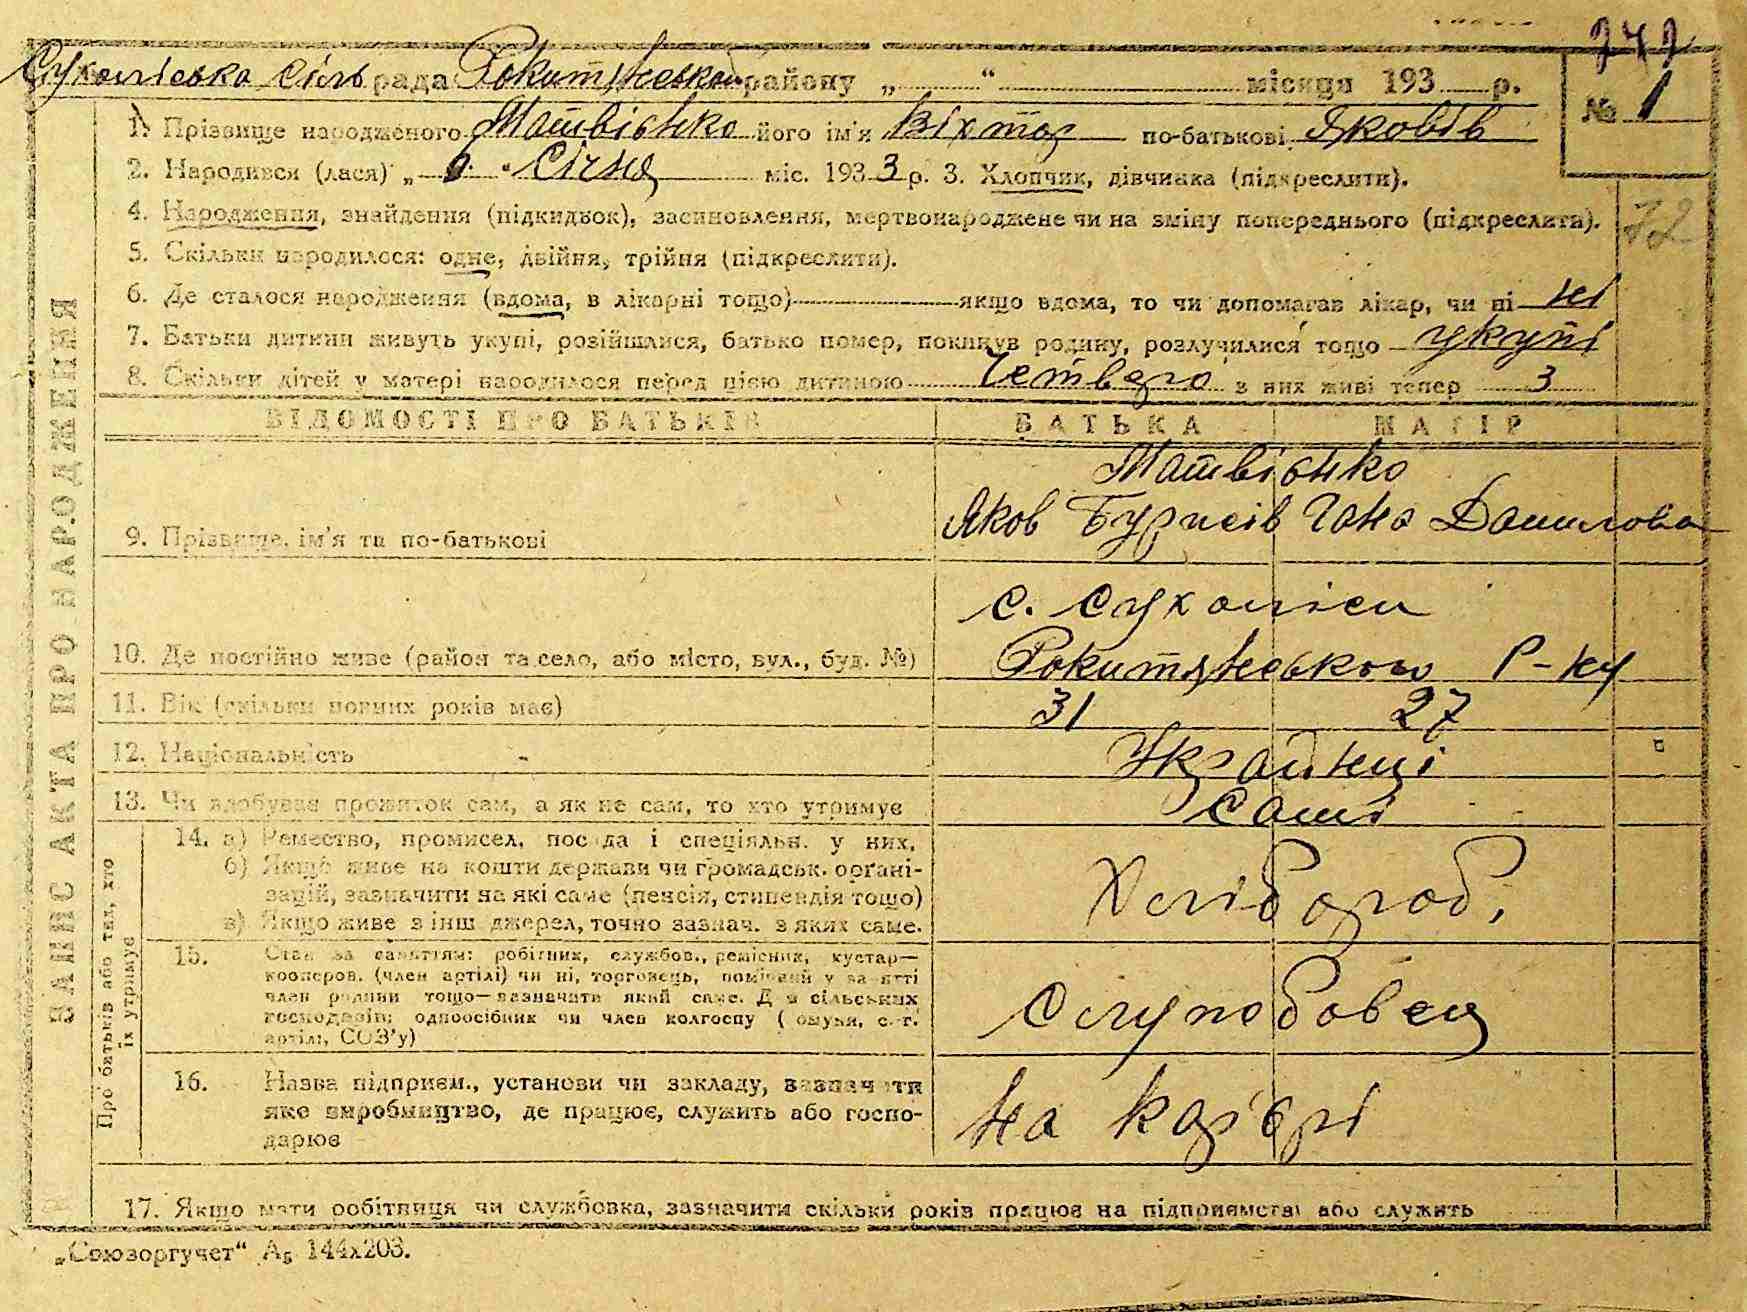 242
Сухоліська сіль рада Рокитянського району „ “ місяця 193 р.
№ 1
1. Прізвище народженого Матвієнко його ім'я Віхтор по-батькові Яковів
2. Народився (лася) „ “ Січня міс. 1933 р. 3. Хлопчик, дівчинка (підкреслити).
4. Народження, знайдення (підкидьок), засиновлення, мертвонароджене чи на зміну попереднього (підкреслити).
72
5. Скільки народилося: одне, двійня, трійня (підкреслити).
6. Де сталося народження (вдома, в лікарні тощо) якщо вдома, то чи допомагав лікар, чи ні ні
7. Батьки дитини живуть укупі, розійшлися, батько помер, покинув родину, розлучилися тощо укупі
8. Скільки дітей у матері народилося перед цією дитиною Четверо з них живі тепер 3
ЗАПИС АКТА ПРО НАРОДЖЕННЯ
ВІДОМОСТІ ПРО БАТЬКІВ БАТЬКА МАТІР
Матвієнко
9. Прізвище, ім'я та по-батькові Яков Бурисів Гана Данилова
с. Сухоліси
10. Де постійно живе (район та село, або місто, вул., буд. №) Рокитянського Р-ну
11. Вік (скільки повних років має) 31 27
12. Національність Українці
13. Чи здобуває прожиток сам, а як не сам, то хто утримує Самі
Про батьків або тих, хто їх утримує
14. а) Ремество, промисел, посада і спеціяльн. у них.
б) Якщо живе на кошти держави чи громадськ. органі-
зацій, зазначити на які саме (пенсія, стипендія тощо)
в) Якщо живе з інш джерел, точно зазнач. з яких саме.
Хлібороб,
15. Стан за заняттям: робітник, службов., ремісник, кустар—
кооперов. (член артілі) чи ні, торговець, помічний у занятті
член родини тощо—зазначити який саме. Для сільських
господарів: одноосібник чи член колгоспу ( омуни, с.-г.
артілі, СОЗ'у)
Службовец
16. Назва підприєм., установи чи закладу, зазначити
яке виробництво, де працює, служить або госпо-
дарює
На кар'єрі
17. Якщо мати робітниця чи службовка, зазначити скільки років працює на підприємстві або служить
„Союзоргучет“ А5 144х203.